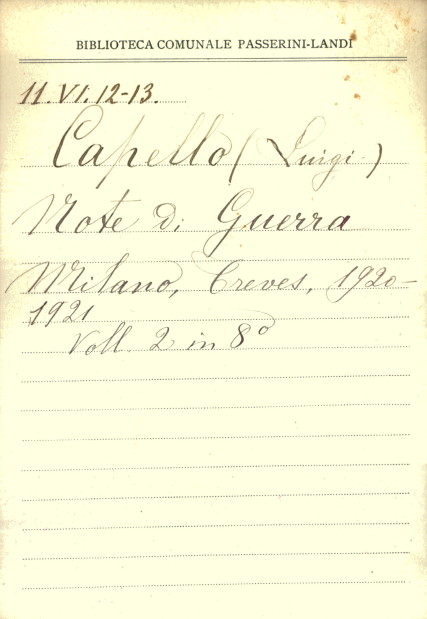 BIBLIOTECA COMUNALE PASSERINI-LANDI
11.VI.12-13.
Capello (Luigi)
Note di Guerra
Milano, Treves, 1920-
1921
Voll. 2 in 8º